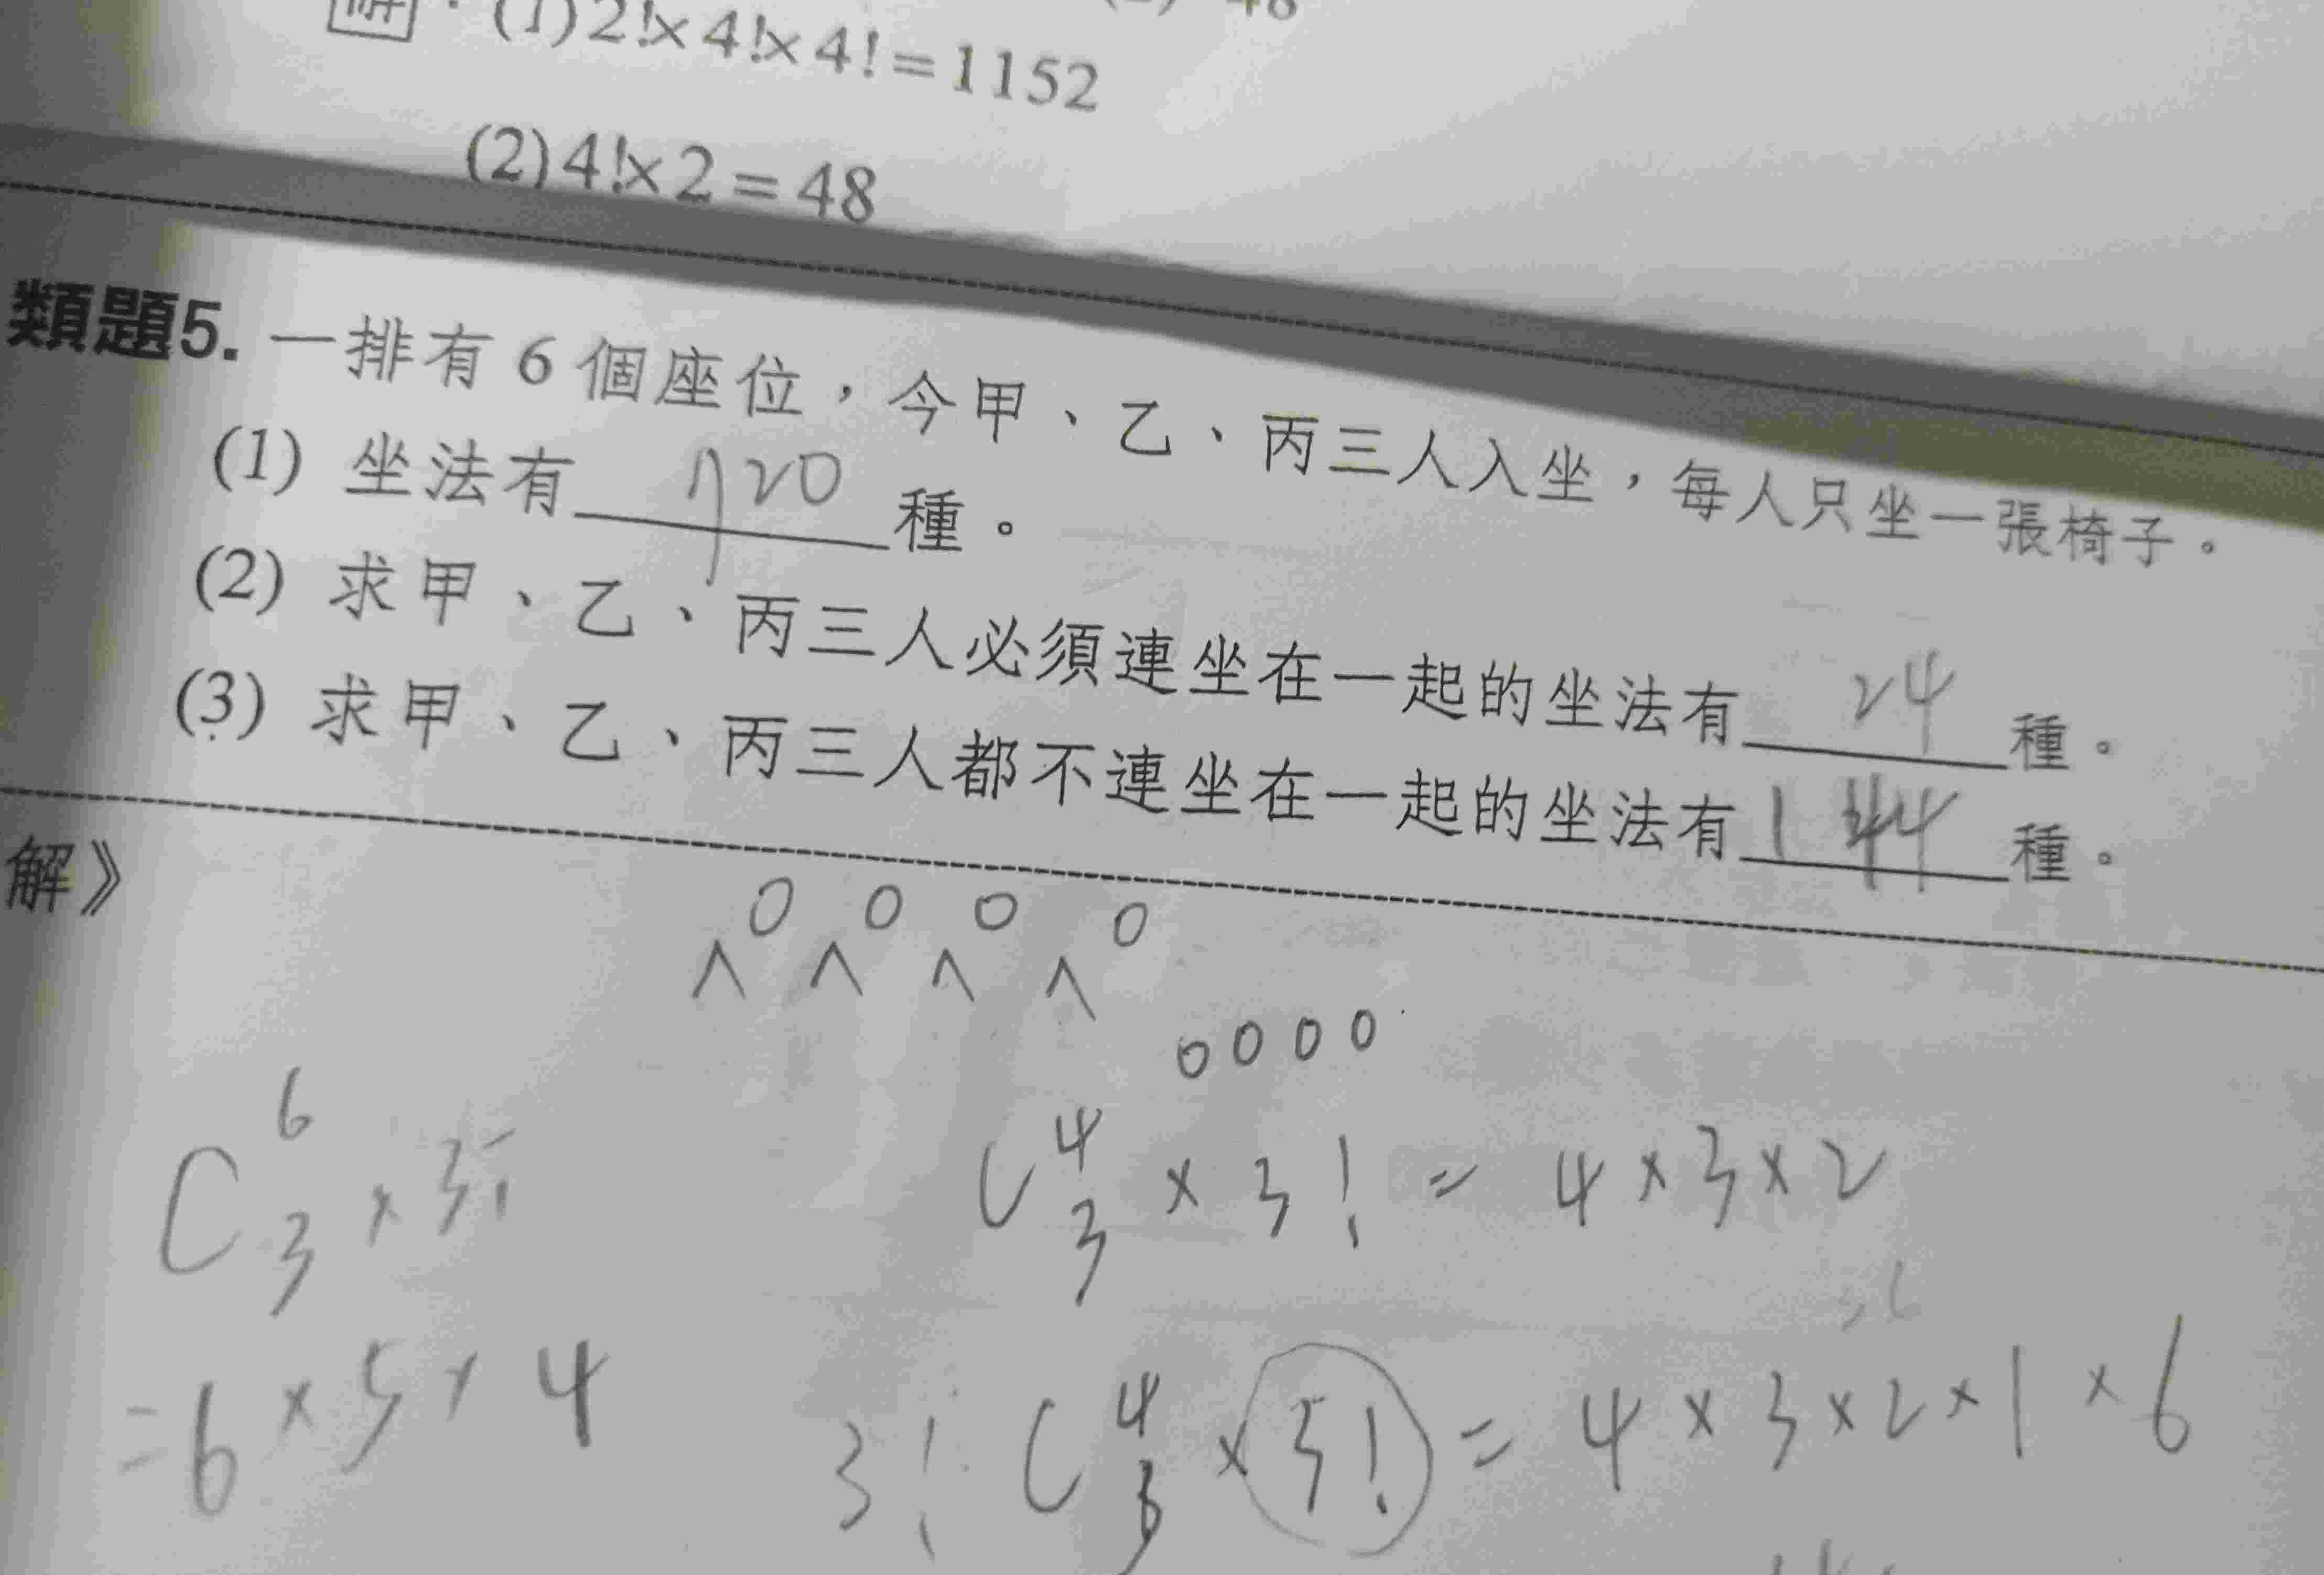 解 : (1)2!×4!×4!=1152
48
(2)4!×2=48
類題5. 一排有 6 個座位，今甲、乙、丙三人入坐，每人只坐一張椅子。
(1) 坐法有 720 種。
(2) 求甲、乙、丙三人必須連坐在一起的坐法有 24 種。
(3) 求甲、乙、丙三人都不連坐在一起的坐法有 144 種。
解》
0 0 0 0
^ ^ ^ ^
0 0 0 0
C 6 3 × 3!
C 4 3 × 3! = 4×3×2
= 6×5×4
3! C 4 3 × 3! = 4×3×2×1×6